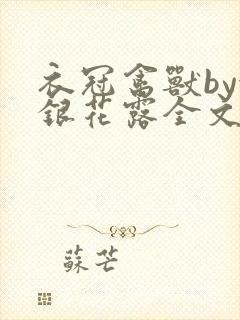 衣冠禽獸by
銀花露全文
蘇芒